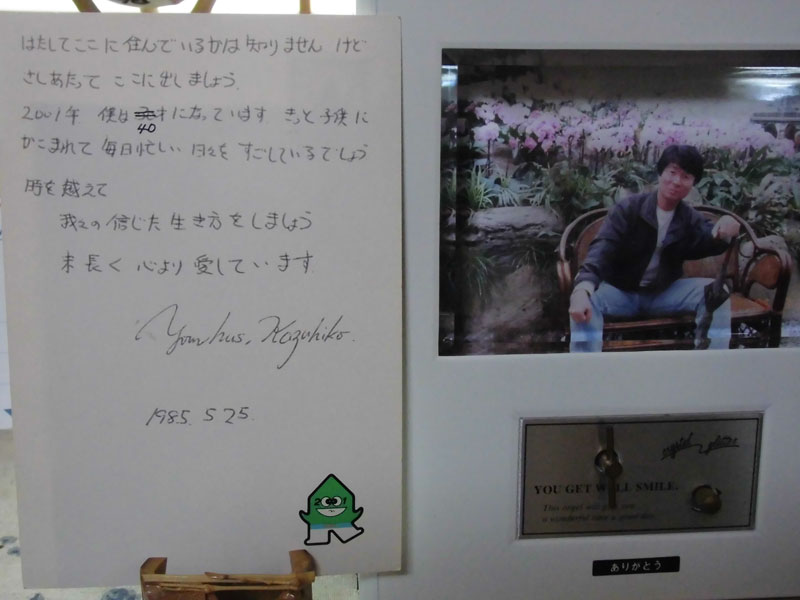 はたしてここに住んでいるかは知りません けど
さしあたって ここに出しましょう.
2001年 僕は 40才になっています. きっと子供に
かこまれて 毎日忙しい 日々を すごしているでしょう
時を越えて
我々の信じた 生き方をしましょう
末長く 心より 愛しています.
Your hus, Kazuhiko.
1985. 5 25.
2001
YOU GET WELL SMILE.
This angel will give you
a wonderful time & good day.
ありがとう